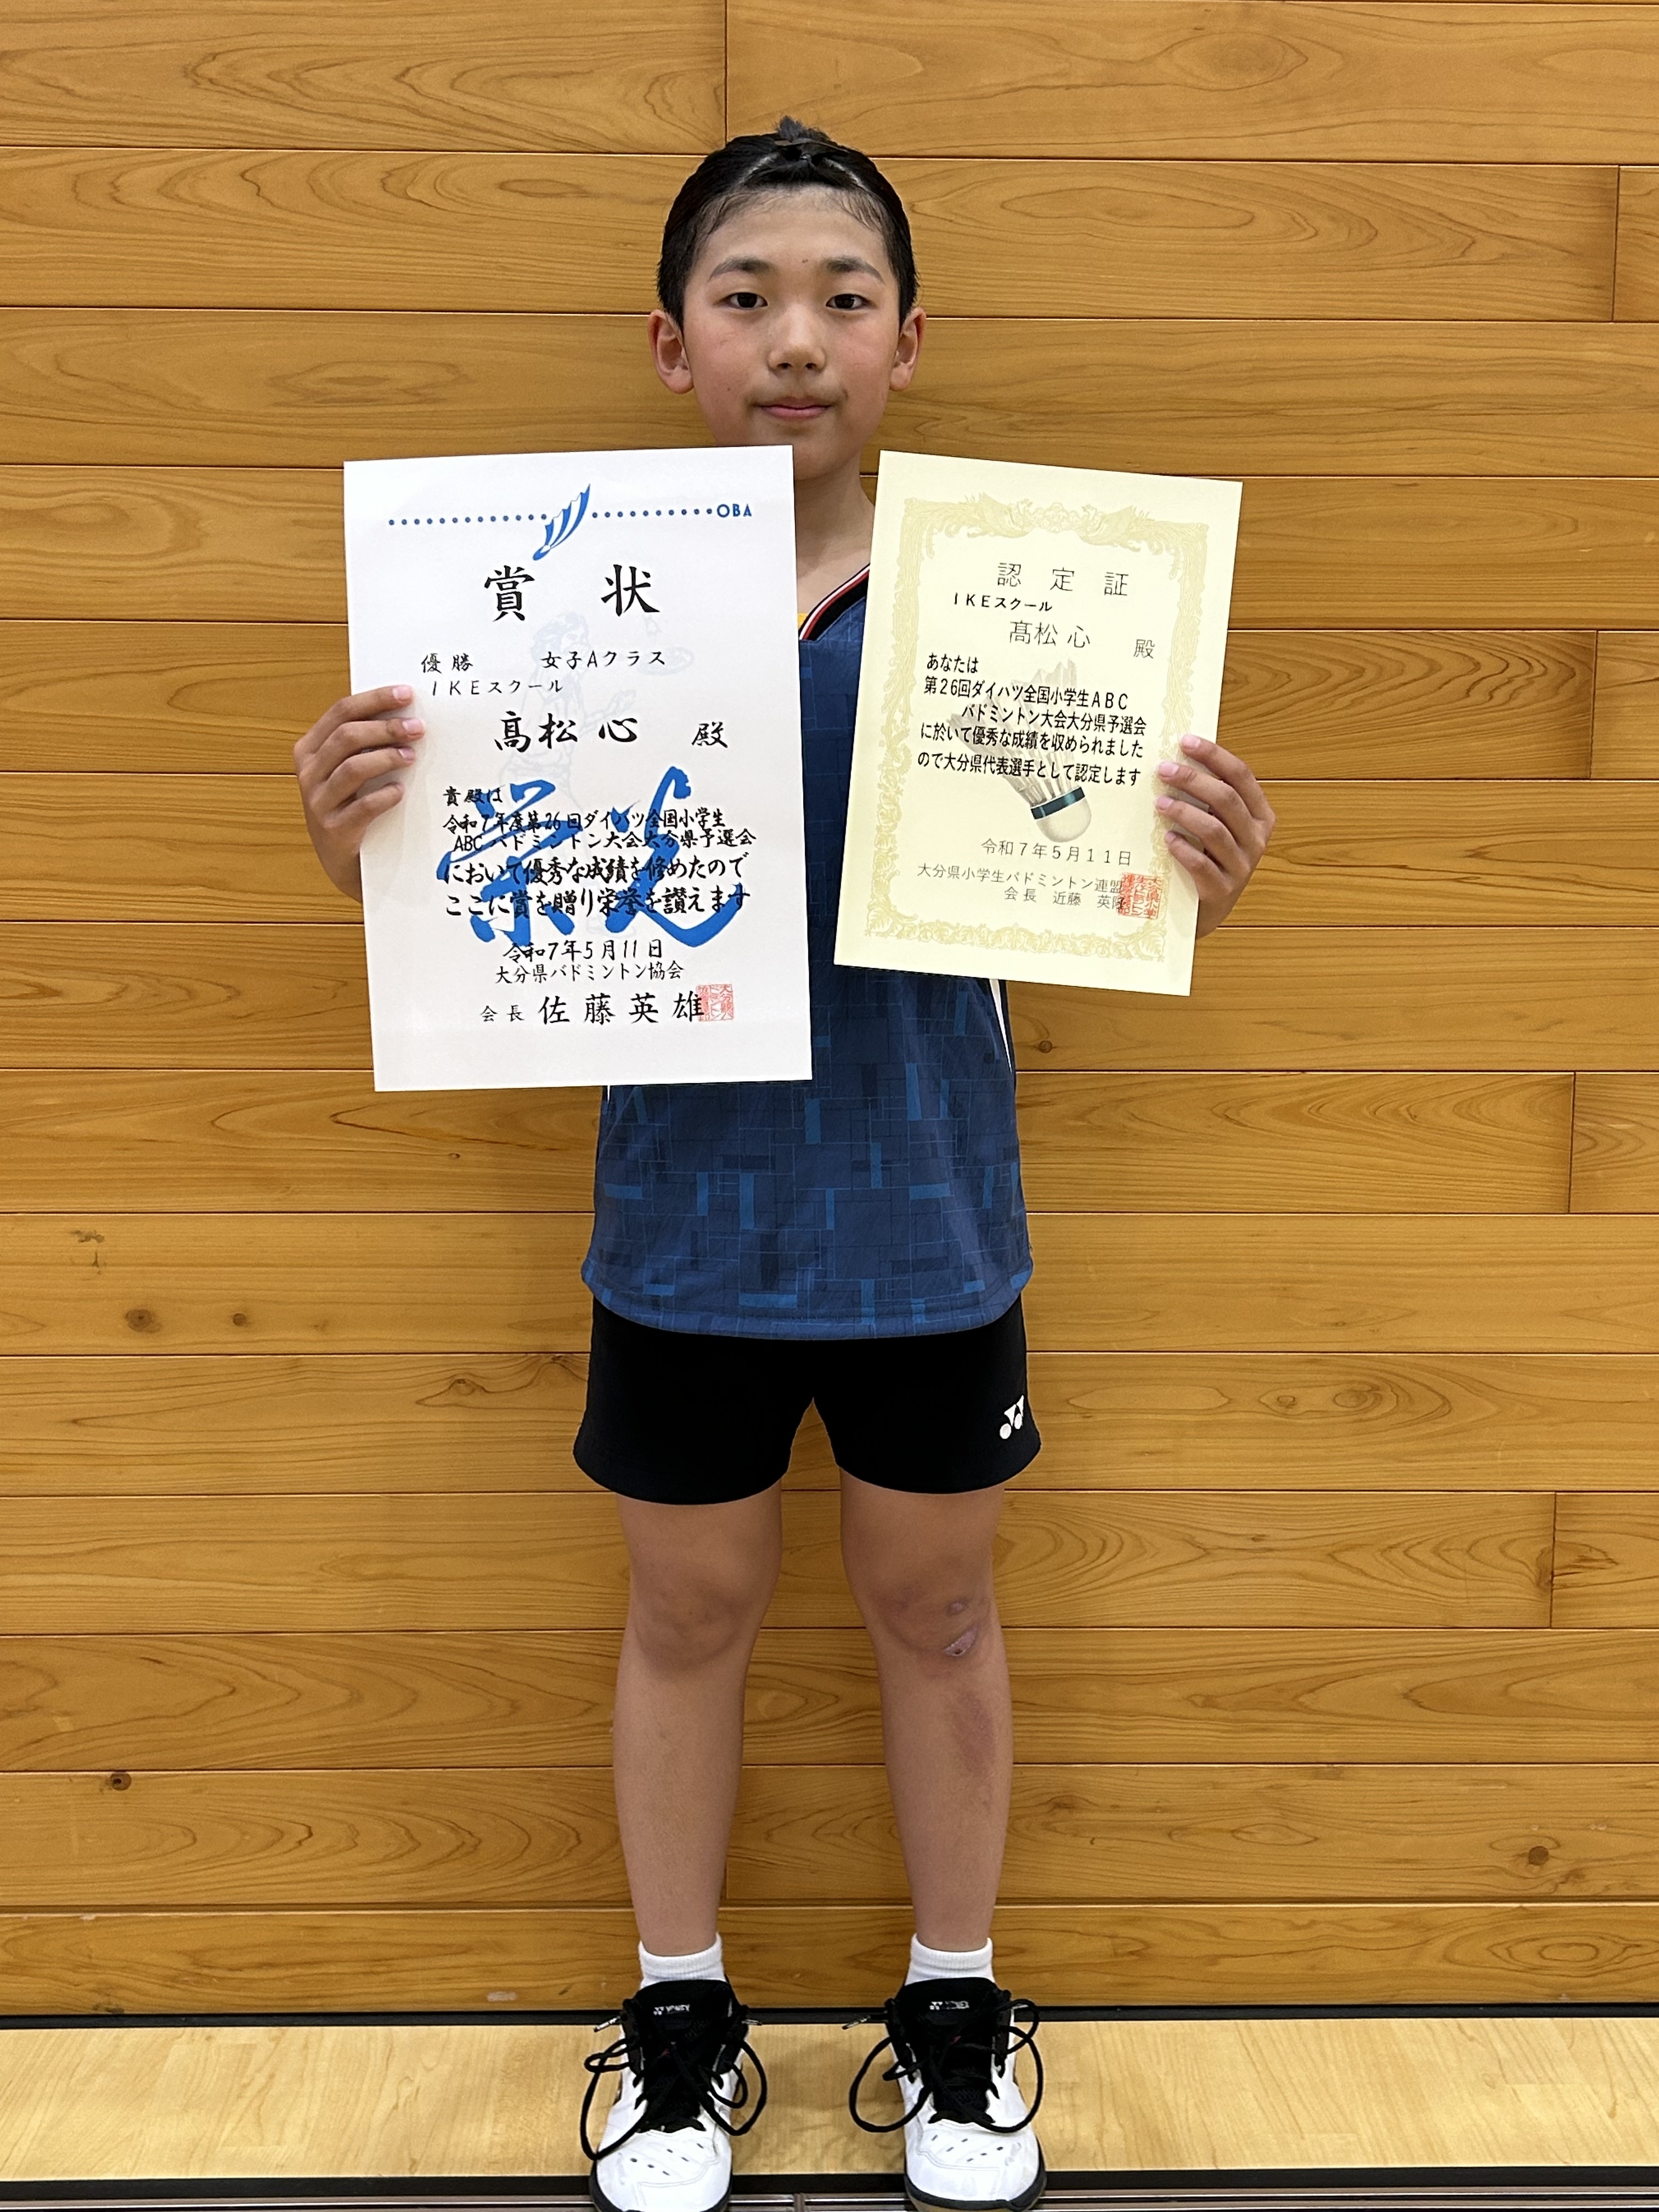 OBA
賞 状
優勝 女子Aクラス
IKEスクール
髙松心 殿
貴殿は
令和7年度第26回ダイハツ全国小学生
ABCバドミントン大会大分県予選会
において優秀な成績を修めたので
ここに賞を贈り栄誉を讃えます
栄光
令和7年5月11日
大分県バドミントン協会
会長 佐藤英雄
認 定 証
IKEスクール
髙松心 殿
あなたは
第26回ダイハツ全国小学生ABC
バドミントン大会大分県予選会
に於いて優秀な成績を収められました
ので大分県代表選手として認定します
令和7年5月11日
大分県小学生バドミントン連盟
会長 近藤 英
YONEX
YONEX